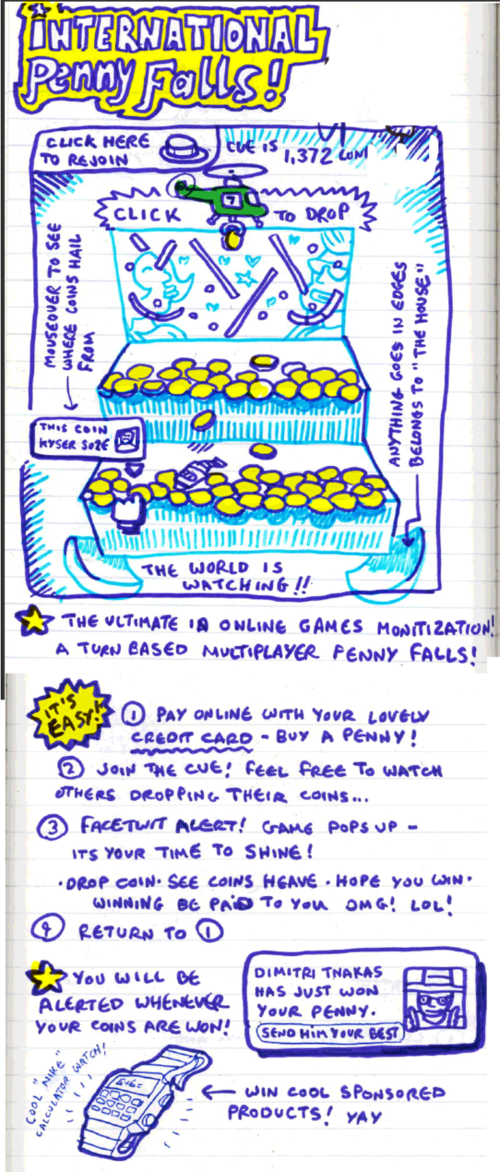 INTERNATIONAL
Penny Falls!
CLICK HERE
TO REJOIN
CUE IS
1,372
CLICK
TO DROP
MOUSEOVER TO SEE
WHERE COINS HAIL
FROM
ANYTHING GOES IN EDGES
BELONGS TO "THE HOUSE"
THIS COIN
KYSER SOZE
THE WORLD IS
WATCHING!!
THE ULTIMATE IN ONLINE GAMES MONITIZATION!
A TURN BASED MULTIPLAYER PENNY FALLS!
IT'S
EASY!
① PAY ONLINE WITH YOUR LOVELY
CREDIT CARD - BUY A PENNY!
② JOIN THE CUE! FEEL FREE TO WATCH
OTHERS DROPPING THEIR COINS...
③ FACETWIT ALERT! GAME POPS UP -
ITS YOUR TIME TO SHINE!
·DROP COIN· SEE COINS HEAVE · HOPE YOU WIN·
WINNING BE PAID TO YOU OMG! LOL!
④ RETURN TO ①
YOU WILL BE
ALERTED WHENEVER
YOUR COINS ARE WON!
DIMITRI TNAKAS
HAS JUST WON
YOUR PENNY.
SEND HIM YOUR BEST
COOL "NIKE"
CALCULATOR WATCH!
WIN COOL SPONSORED
PRODUCTS! YAY